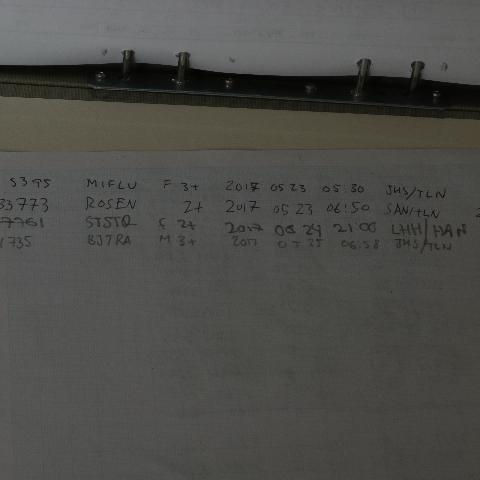 5395 MIFLU F 3+ 2017 05 23 05:30 JHS/TLN
33773 ROSEN 2+ 2017 05 23 06:50 SAN/TLN 2
7761 STSTR 2+ 2017 06 24 21:00 LHH/HAN
1735 BJTRA M 3+ 2017 07 25 06:58 JHS/TLN